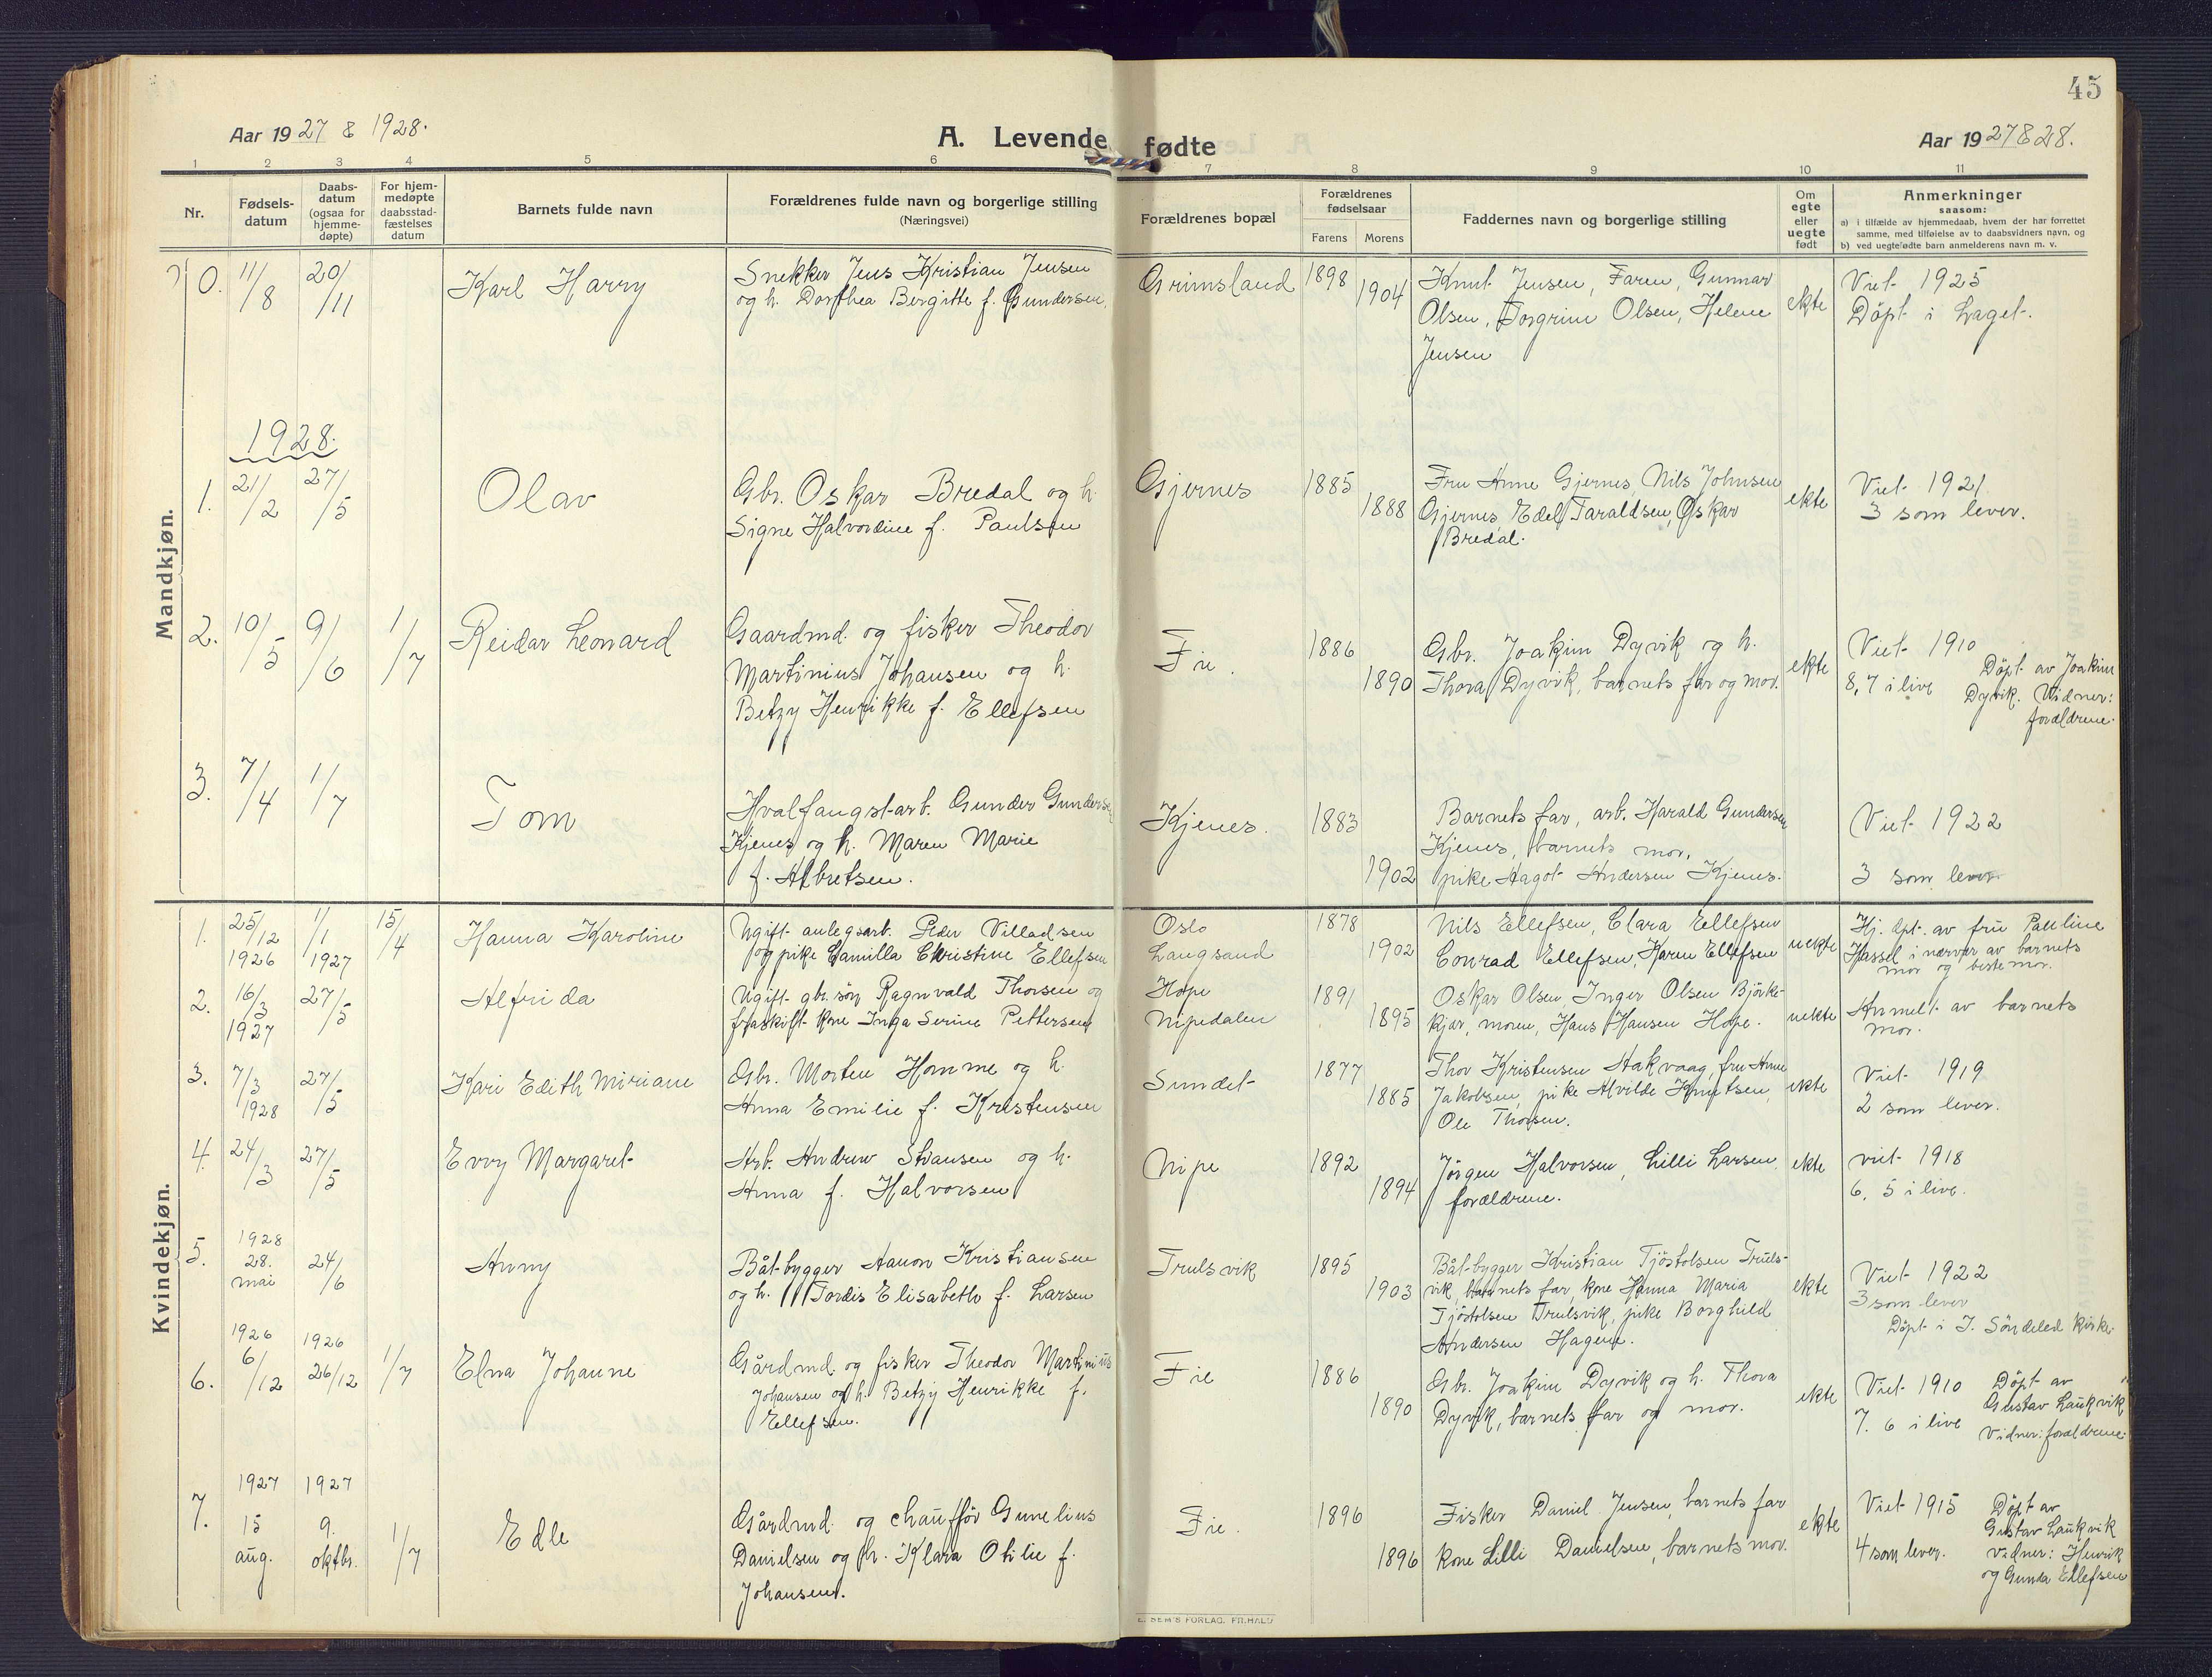 45
Aar 1927 & 1928.
A. Levende fødte
Aar 1927 & 28.
1 2 3 4 5 6 7 8 9 10 11
Nr.
Fødsels-
datum
Daabs-
datum
(ogsaa for
hjemme-
døpte)
For hjem-
medøpte
daabsstad-
fæstelses
datum
Barnets fulde navn
Forældrenes fulde navn og borgerlige stilling
(Næringsvei)
Forældrenes bopæl
Forældrenes
fødselsaar
Farens Morens
Faddernes navn og borgerlige stilling
Om
egte
eller
uegte
født
Anmerkninger
saasom:
a) i tilfælde av hjemmedaab, hvem der har forrettet
samme, med tilføielse av to daabsvidners navn, og
b) ved uegtefødte barn anmelderens navn m. v.
Mandkjøn.
0. 11/8 20/11
Karl Harry
Snekker Jens Kristian Jensen
og h. Dorthea Bergitte f. Gundersen.
Grimsland
1898
1904
Knut Jensen, Faren, Gunnar
Olsen, Torgrim Olsen, Helene
Jensen
ekte
Viet 1925
Döpt i Laget.
1928.
1. 21/2 27/5
Olav
Gbr. Oskar Bredal og h.
Signe Halvordine f. Paulsen
Gjernes
1885
1888
Fru Anne Gjernes, Nils Johnsen
Gjernes, Edel Taraldsen, Oskar
Bredal.
ekte
Viet 1921
3 som lever.
2. 10/5 9/6 1/7
Reidar Leonard
Gaardmd. og fisker Theodor
Martinius Johansen og h.
Betzy Henrikke f. Ellefsen
Fie.
1886
1890
Gbr. Joakim Dyvik og h.
Thora Dyvik, barnets far og mor.
ekte
Viet 1910
8, 7 i live
Döpt av Joakim
Dyvik. Vidner:
forældrene.
3. 7/4 1/7
Tom
Hvalfangstarb. Gunder Gundersen
Kjenes og h. Maren Marie
f. Albretsen.
Kjenes.
1883
1902
Barnets far, arb. Harald Gundersen
Kjenes, barnets mor,
pike Aagot Andersen Kjenes.
Viet 1922
3 som lever
Kvindekjøn.
1. 25/12 1926 1/1 1927 15/4
Hanna Karoline
Ugift anlegsarb. Peder Villadsen
og pike Camilla Christine Ellefsen
Oslo
Langsand
1878
1902
Nils Ellefsen, Clara Ellefsen
Conrad Ellefsen, Karen Ellefsen
uekte
Hj. dpt. av fru Pauline
Hassel i nærvær av barnets
mor og bestemor.
2. 16/3 1927 27/5
Alfrida
Ugift gbr. sön Ragnvald Thorsen og
fraskilt kone Inga Serine Pettersen
Hope
Nipedalen
1891
1895
Oskar Olsen, Inger Olsen Björke-
kjær, moren, Hans Hansen Hope.
uekte
Anmelt av barnets
mor.
3. 7/3 1928 27/5
Kari Edith Miriane
Gbr. Morten Homme og h.
Anna Emilie f. Kristensen
Sundet
1877
1885
Thor Kristensen Stakvaag, fru Anne
Jakobsen, pike Alvilde Knutsen,
Ole Thorsen.
ekte
Viet 1919
2 som lever.
4. 24/3 27/5
Evvy Margaret
Arb. Andrew Stiansen og h.
Anna f. Halvorsen
Nipe
1892
1894
Jörgen Halvorsen, Lilli Larsen,
forældrene.
ekte
viet 1918
6. 5 i live.
5. 1928 28. mai 24/6
Anny
Båtbygger Aanon Kristiansen
og h. Tordis Elisabeth f. Larsen
Trulsvik
1895
1903
Båtbygger Kristian Tjöstolsen Truls-
vik, barnets far, kone Hanna Maria
Tjöstolsen Trulsvik, pike Borghild
Andersen Hagene.
ekte
Viet 1922
3 som lever
Döpt i I. Söndeled kirke.
6. 1926 6/12 1926 26/12 1/7
Elna Johanne
Gårdmd. og fisker Theodor Martinius
Johansen og h. Betzy Henrikke f.
Ellefsen.
Fie
1886
1890
Gbr. Joakim Dyvik og h. Thora
Dyvik, barnets far og mor.
ekte
Viet 1910
7. 6 i live
Döpt av
Gustav Laukvik
Vidner: forældrene.
7. 1927 15 aug. 1927 9. oktbr. 1/7
Edle
Gårdmd. og chaufför Gunelius
Danielsen og h. Klara Otilie f.
Johansen.
Fie.
1896
1896
Fisker Daniel Jensen, barnets far
kone Lilli Danielsen, barnets mor.
ekte
Viet 1915
4 som lever.
Döpt av
Gustav Laukvik
vidner: Henrik
og Gunda Ellefsen
E. SEM'S FORLAG, FR.HALD